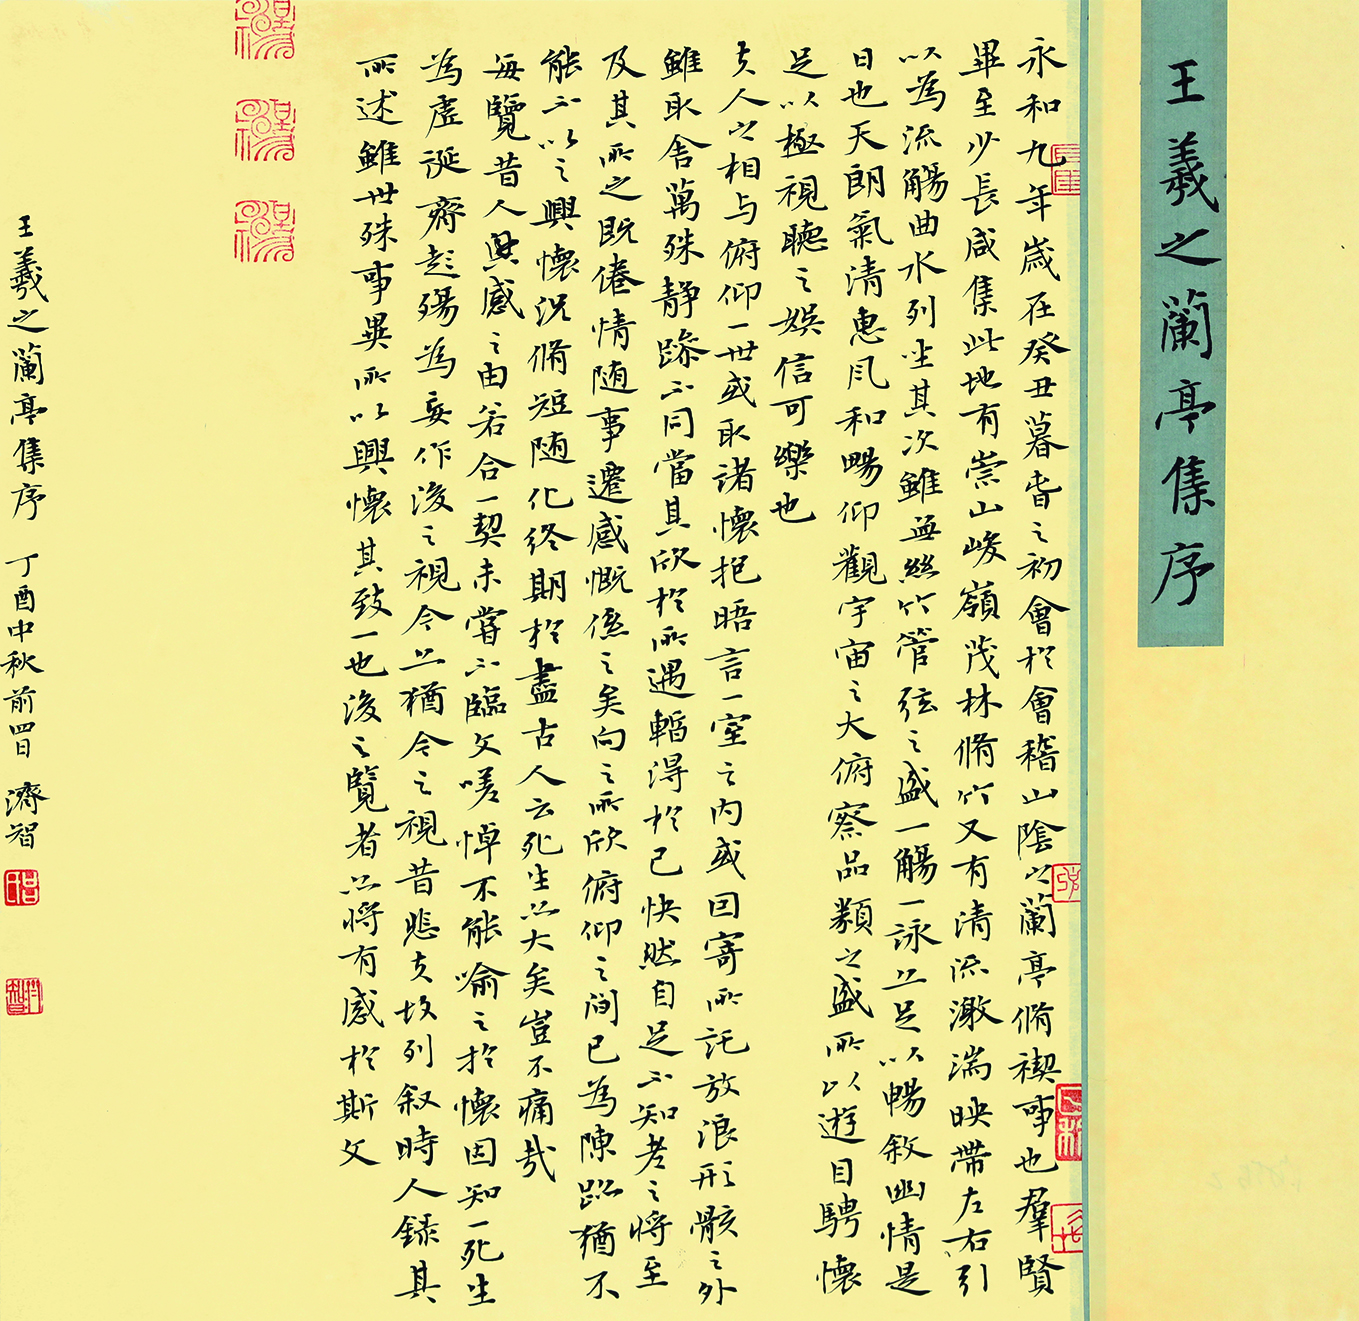 王羲之蘭亭集序
永和九年歲在癸丑暮春之初會於會稽山陰之蘭亭脩禊事也羣賢
畢至少長咸集此地有崇山峻嶺茂林脩竹又有清流激湍映帶左右引
以為流觴曲水列坐其次雖無絲竹管弦之盛一觴一詠亦足以暢敘幽情是
日也天朗氣清惠風和暢仰觀宇宙之大俯察品類之盛所以遊目騁懷
足以極視聽之娛信可樂也
夫人之相与俯仰一世或取諸懷抱晤言一室之內或因寄所託放浪形骸之外
雖取舍萬殊靜躁不同當其欣於所遇暫得於己快然自足不知老之將至
及其所之既倦情随事遷感慨係之矣向之所欣俯仰之間已為陳跡猶不
能不以之興懷況脩短随化終期於盡古人云死生亦大矣豈不痛哉
每覽昔人興感之由若合一契未嘗不臨文嗟悼不能喻之於懷固知一死生
為虛誕齊彭殤為妄作後之視今亦猶今之視昔悲夫故列叙時人錄其
所述雖世殊事異所以興懷其致一也後之覽者亦將有感於斯文
王羲之蘭亭集序 丁酉中秋前四日 濟智